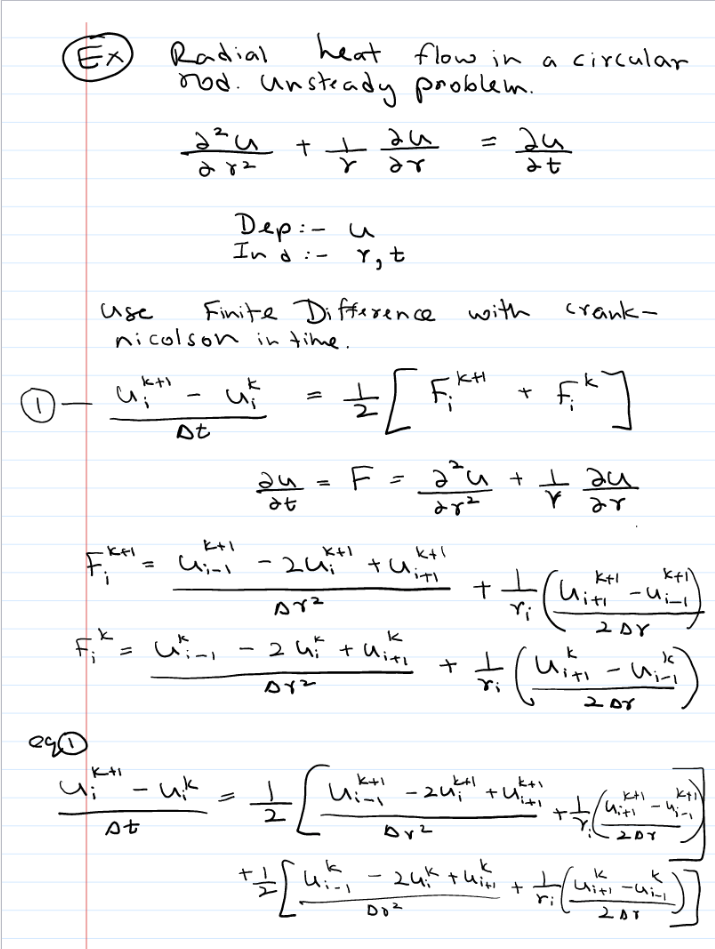 Ex Radial heat flow in a circular
rod. unsteady problem.
∂²u/∂r² + 1/r ∂u/∂r = ∂u/∂t
Dep :- u
Ind :- r, t
use Finite Difference with crank-
nicolson in time.
① — (u_i^{k+1} - u_i^k)/Δt = 1/2 [ F_i^{k+1} + F_i^k ]
∂u/∂t = F = ∂²u/∂r² + 1/r ∂u/∂r
F_i^{k+1} = (u_{i-1}^{k+1} - 2u_i^{k+1} + u_{i+1}^{k+1})/Δr² + 1/r_i ((u_{i+1}^{k+1} - u_{i-1}^{k+1})/2Δr)
F_i^k = (u_{i-1}^k - 2u_i^k + u_{i+1}^k)/Δr² + 1/r_i ((u_{i+1}^k - u_{i-1}^k)/2Δr)
eq ①
(u_i^{k+1} - u_i^k)/Δt = 1/2 [ (u_{i-1}^{k+1} - 2u_i^{k+1} + u_{i+1}^{k+1})/Δr² + 1/r_i ((u_{i+1}^{k+1} - u_{i-1}^{k+1})/2Δr) ]
+ 1/2 [ (u_{i-1}^k - 2u_i^k + u_{i+1}^k)/Δr² + 1/r_i ((u_{i+1}^k - u_{i-1}^k)/2Δr) ]